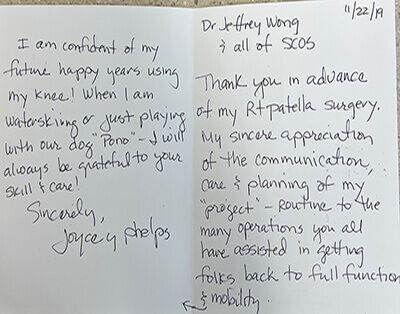 11/22/19
Dr Jeffrey Wong
& all of SCOS
Thank you in advance
of my Rt patella surgery.
My sincere appreciation
of the communication,
care & planning of my
"project" - Routine to the
many operations you all
have assisted in getting
folks back to full function
& mobility.
I am confident of my
future happy years using
my knee! When I am
waterskiing or just playing
with our dog "Pono" - I will
always be grateful to your
skill & care!
Sincerely,
Joyce y phelps